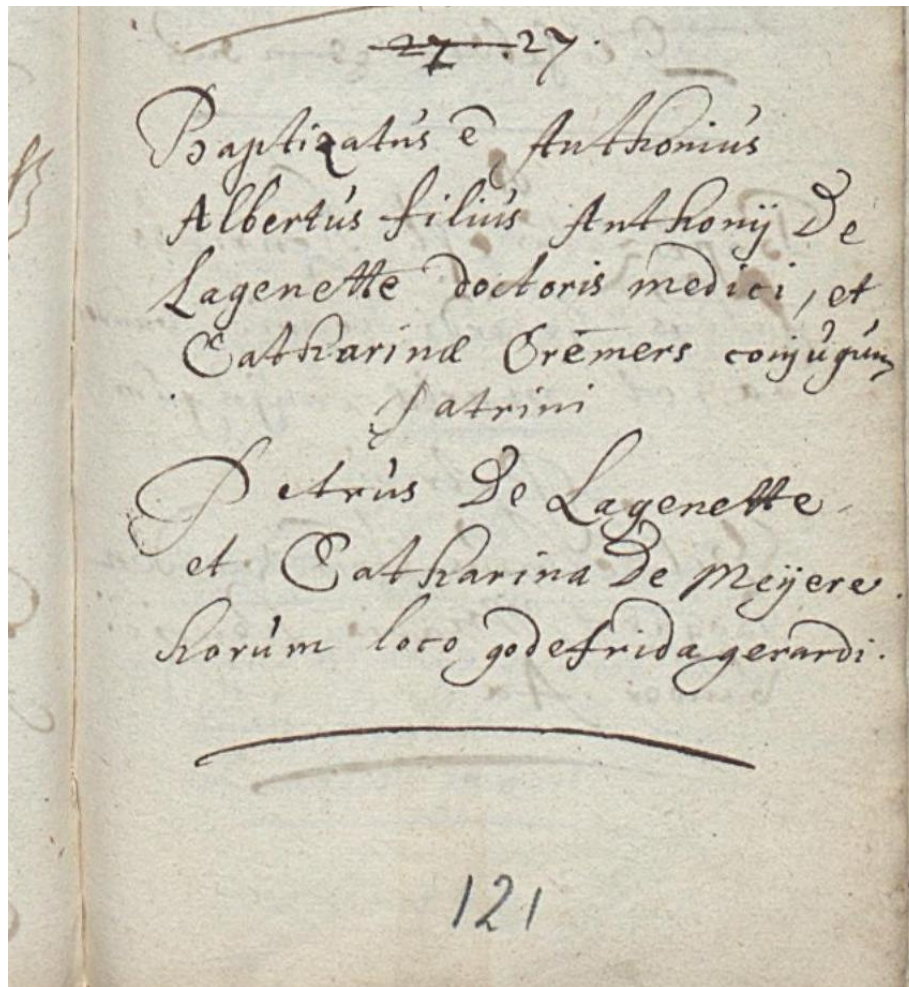 27 . 27.
Baptizatus ē Anthonius
Albertus filius Anthonij De
Lagenette doctoris medici, et
Catharinæ Cremers conjugum
Patrini
Petrus De Lagenette
et Catharina De Meÿere.
horum loco godefrida gerardi.
121